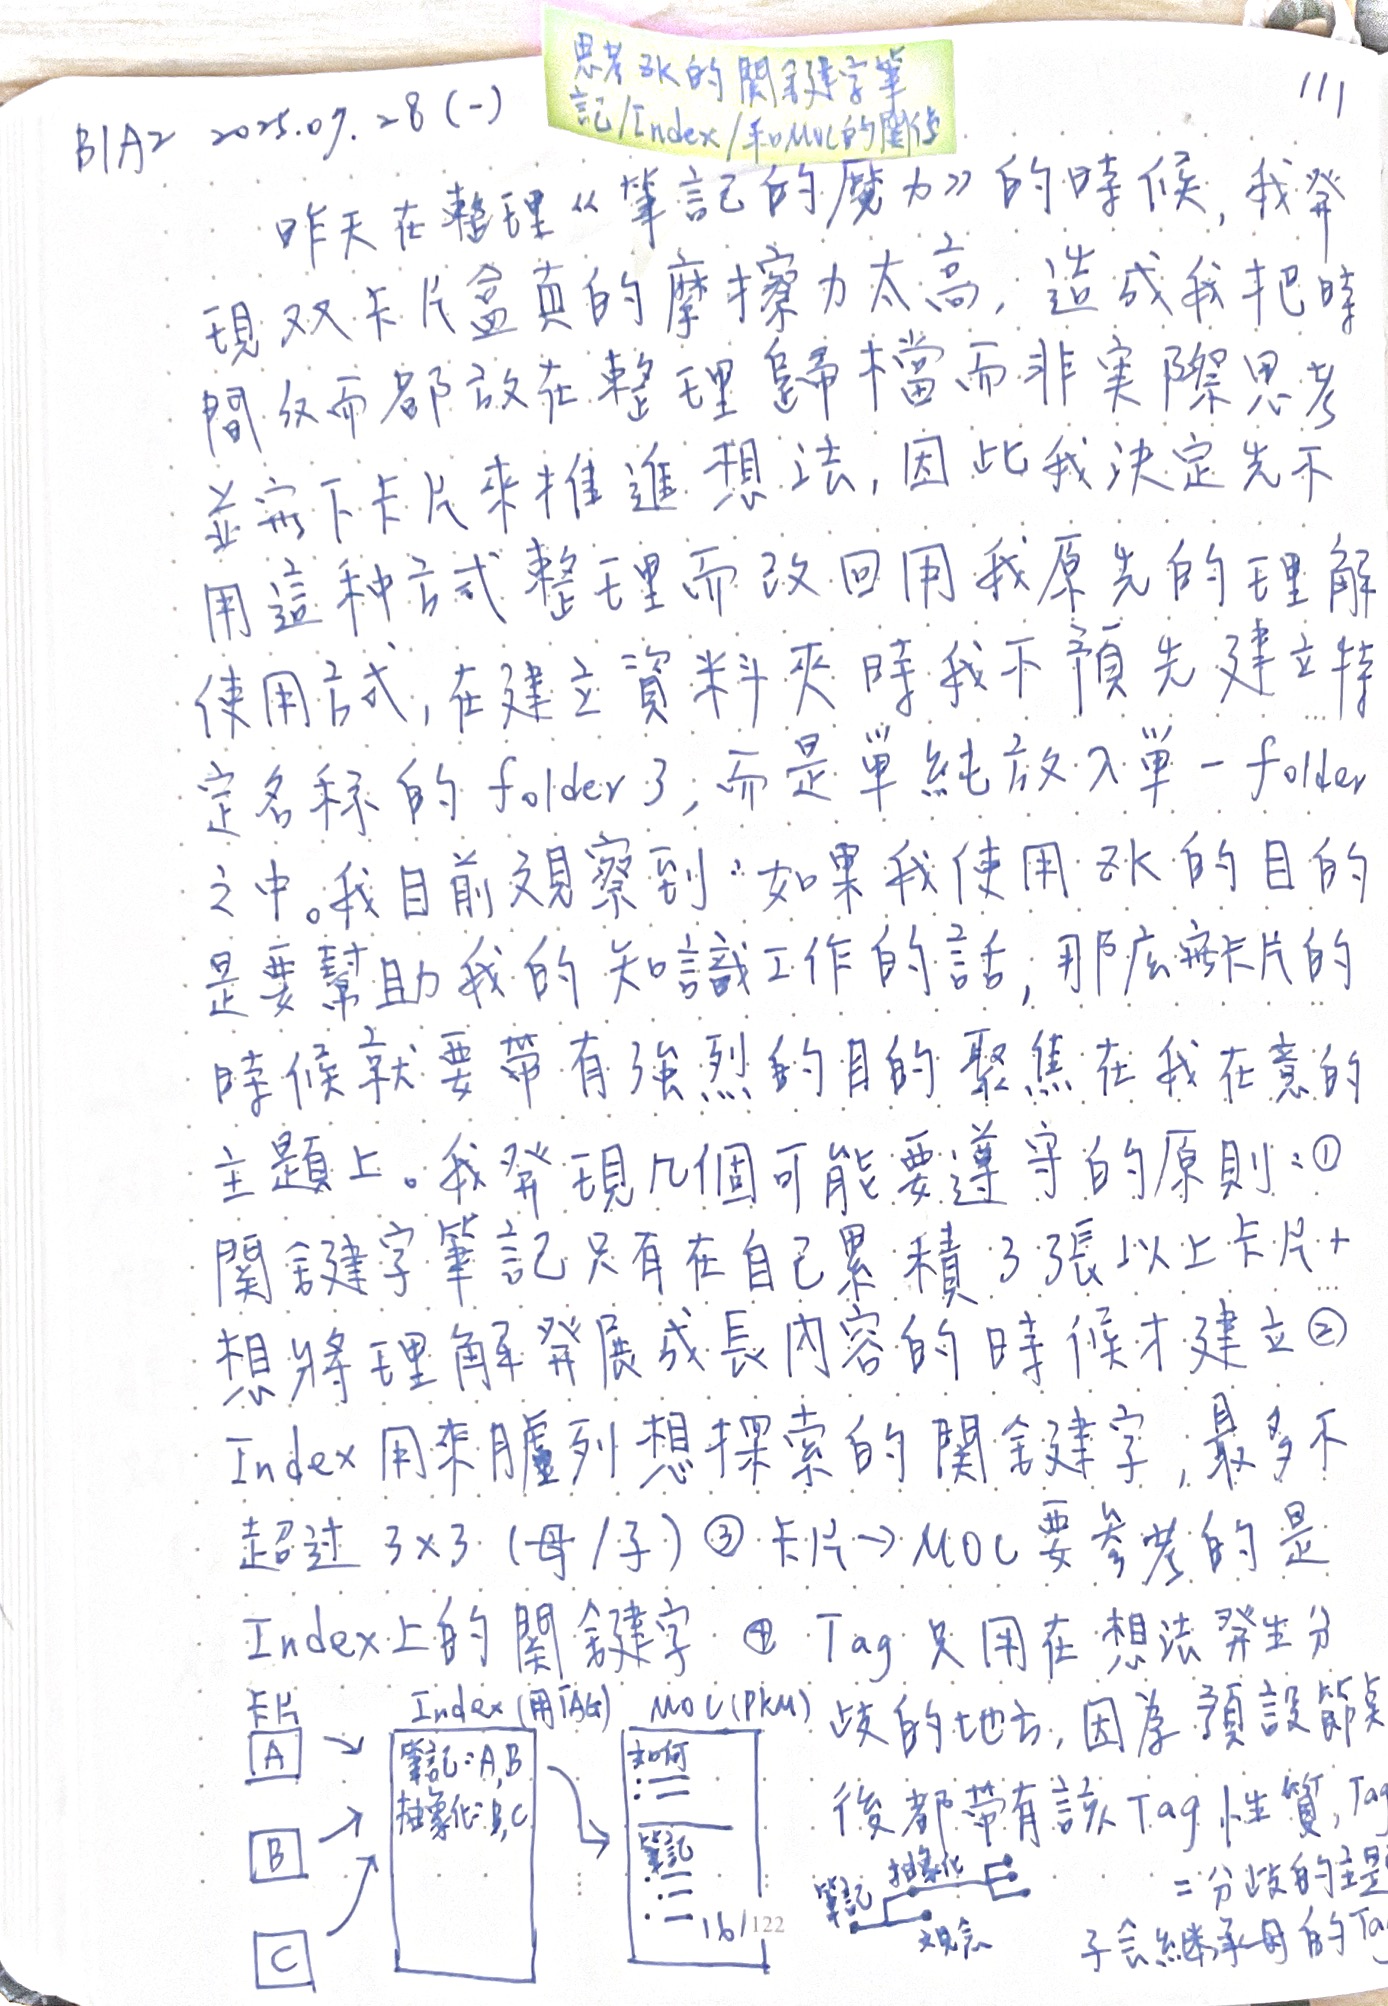 思考ZK的関鍵字筆
記/Index/和MOC的関係
111
B1A2 2025.07.28(一)
昨天在整理《筆記的魔力》的時候,我発
現双卡片盒真的摩擦力太高,造成我把時
間反而都放在整理歸檔而非実際思考
並寫下卡片來推進想法,因此我決定先不
用這种方式整理而改回用我原先的理解
使用方式,在建立資料夾時我不預先建立特
定名称的folder了,而是單純放入單一folder
之中。我目前观察到:如果我使用ZK的目的
是要幫助我的知識工作的話,那広寫卡片的
時候就要帶有強烈的目的聚焦在我在意的
主題上。我発現几個可能要遵守的原則:①
関鍵字筆記只有在自己累積了3張以上卡片+
想將理解発展成長內容的時候才建立②
Index用來臚列想探索的関鍵字,最多不
超过3x3(母/子)③卡片→MOC要参考的是
Index上的関鍵字 ④ Tag只用在想法発生分
歧的地方,因為預設節點
後都帶有該Tag性質,Tag
=分歧的主題
子会継承母的Tag
卡片
A
B
C
Index(用TAG)
筆記:A,B
抽象化:B,C
MOC(PKM)
如何
筆記
16/122
筆記
抽象化
观念